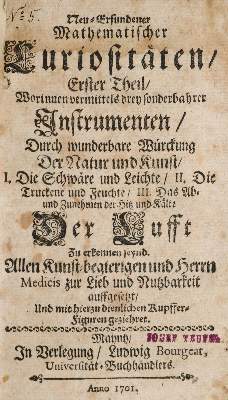 No 5.
Neu-Erfundener
Mathematischer
Curiositäten/
Erster Theil/
Worinnen vermittels drey sonderbahrer
Instrumenten/
Durch wunderbare Würckung
Der Natur und Kunst/
I. Die Schwäre und Leichte/ II. Die
Truckene und Feuchte/ III. Das Ab-
und Zunehmen der Hitz und Kälte
Der Lufft
Zu erkennen seynd.
Allen Kunst-begierigen und Herrn
Medicis zur Lieb und Nutzbarkeit
auffgesetzt/
Und mit hierzu dienlichen Kupffer-
Figuren gezieret.
Mayntz/
JOSEF
In Verlegung/ Ludwig Bourgeat,
Universität-Buchhändlers.
Anno 1701.